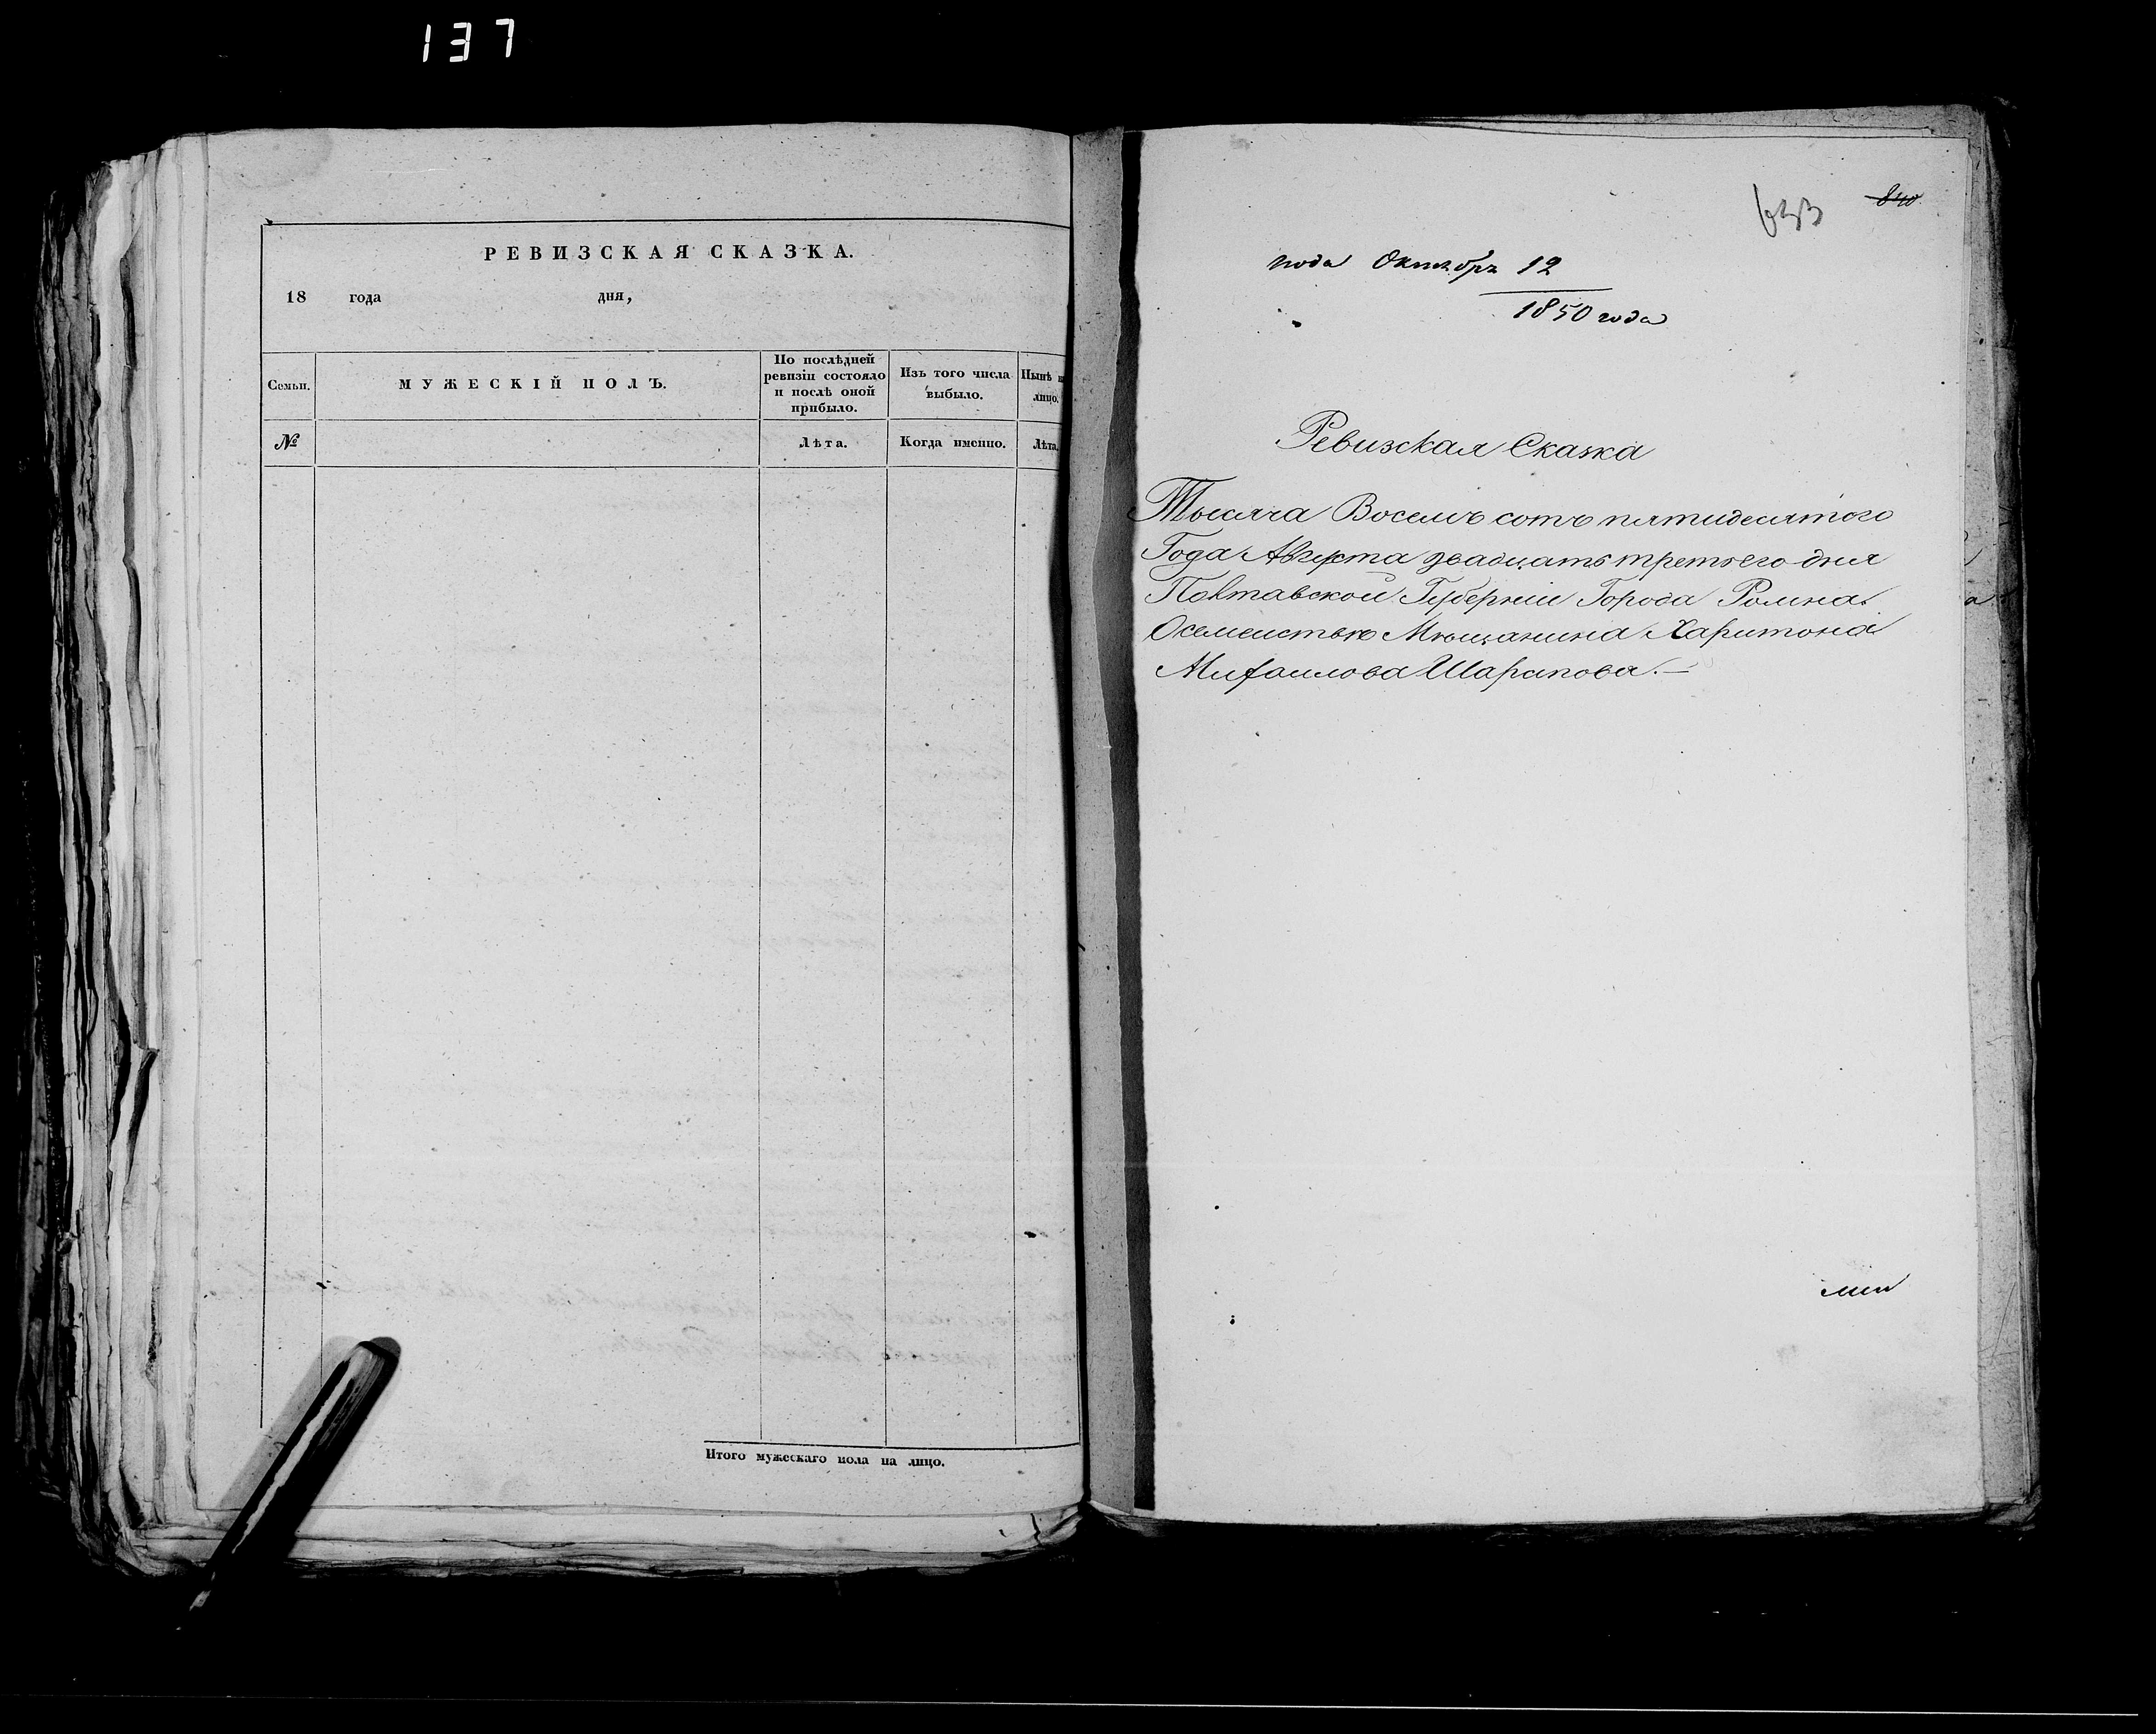 137
РЕВИЗСКАЯ СКАЗКА.
18 года дня,
Семьи.
МУЖЕСКІЙ ПОЛЪ.
По послѣдней ревизіи состояло и послѣ оной прибыло.
Изъ того числа выбыло.
Нынѣ на лицо.
№
Лѣта.
Когда именно.
Лѣта.
Итого мужескаго пола на лицо.
840
633
пода Октябрь 12
1850 года
Ревизская Сказка
Тысяча Восемь сотъ пятидесятого
Года Августа двадцать третьего дня
Полтавской Губерніи Города Ромна
Осемействѣ Мѣщанина Харитона
Михайлова Шарапова.—